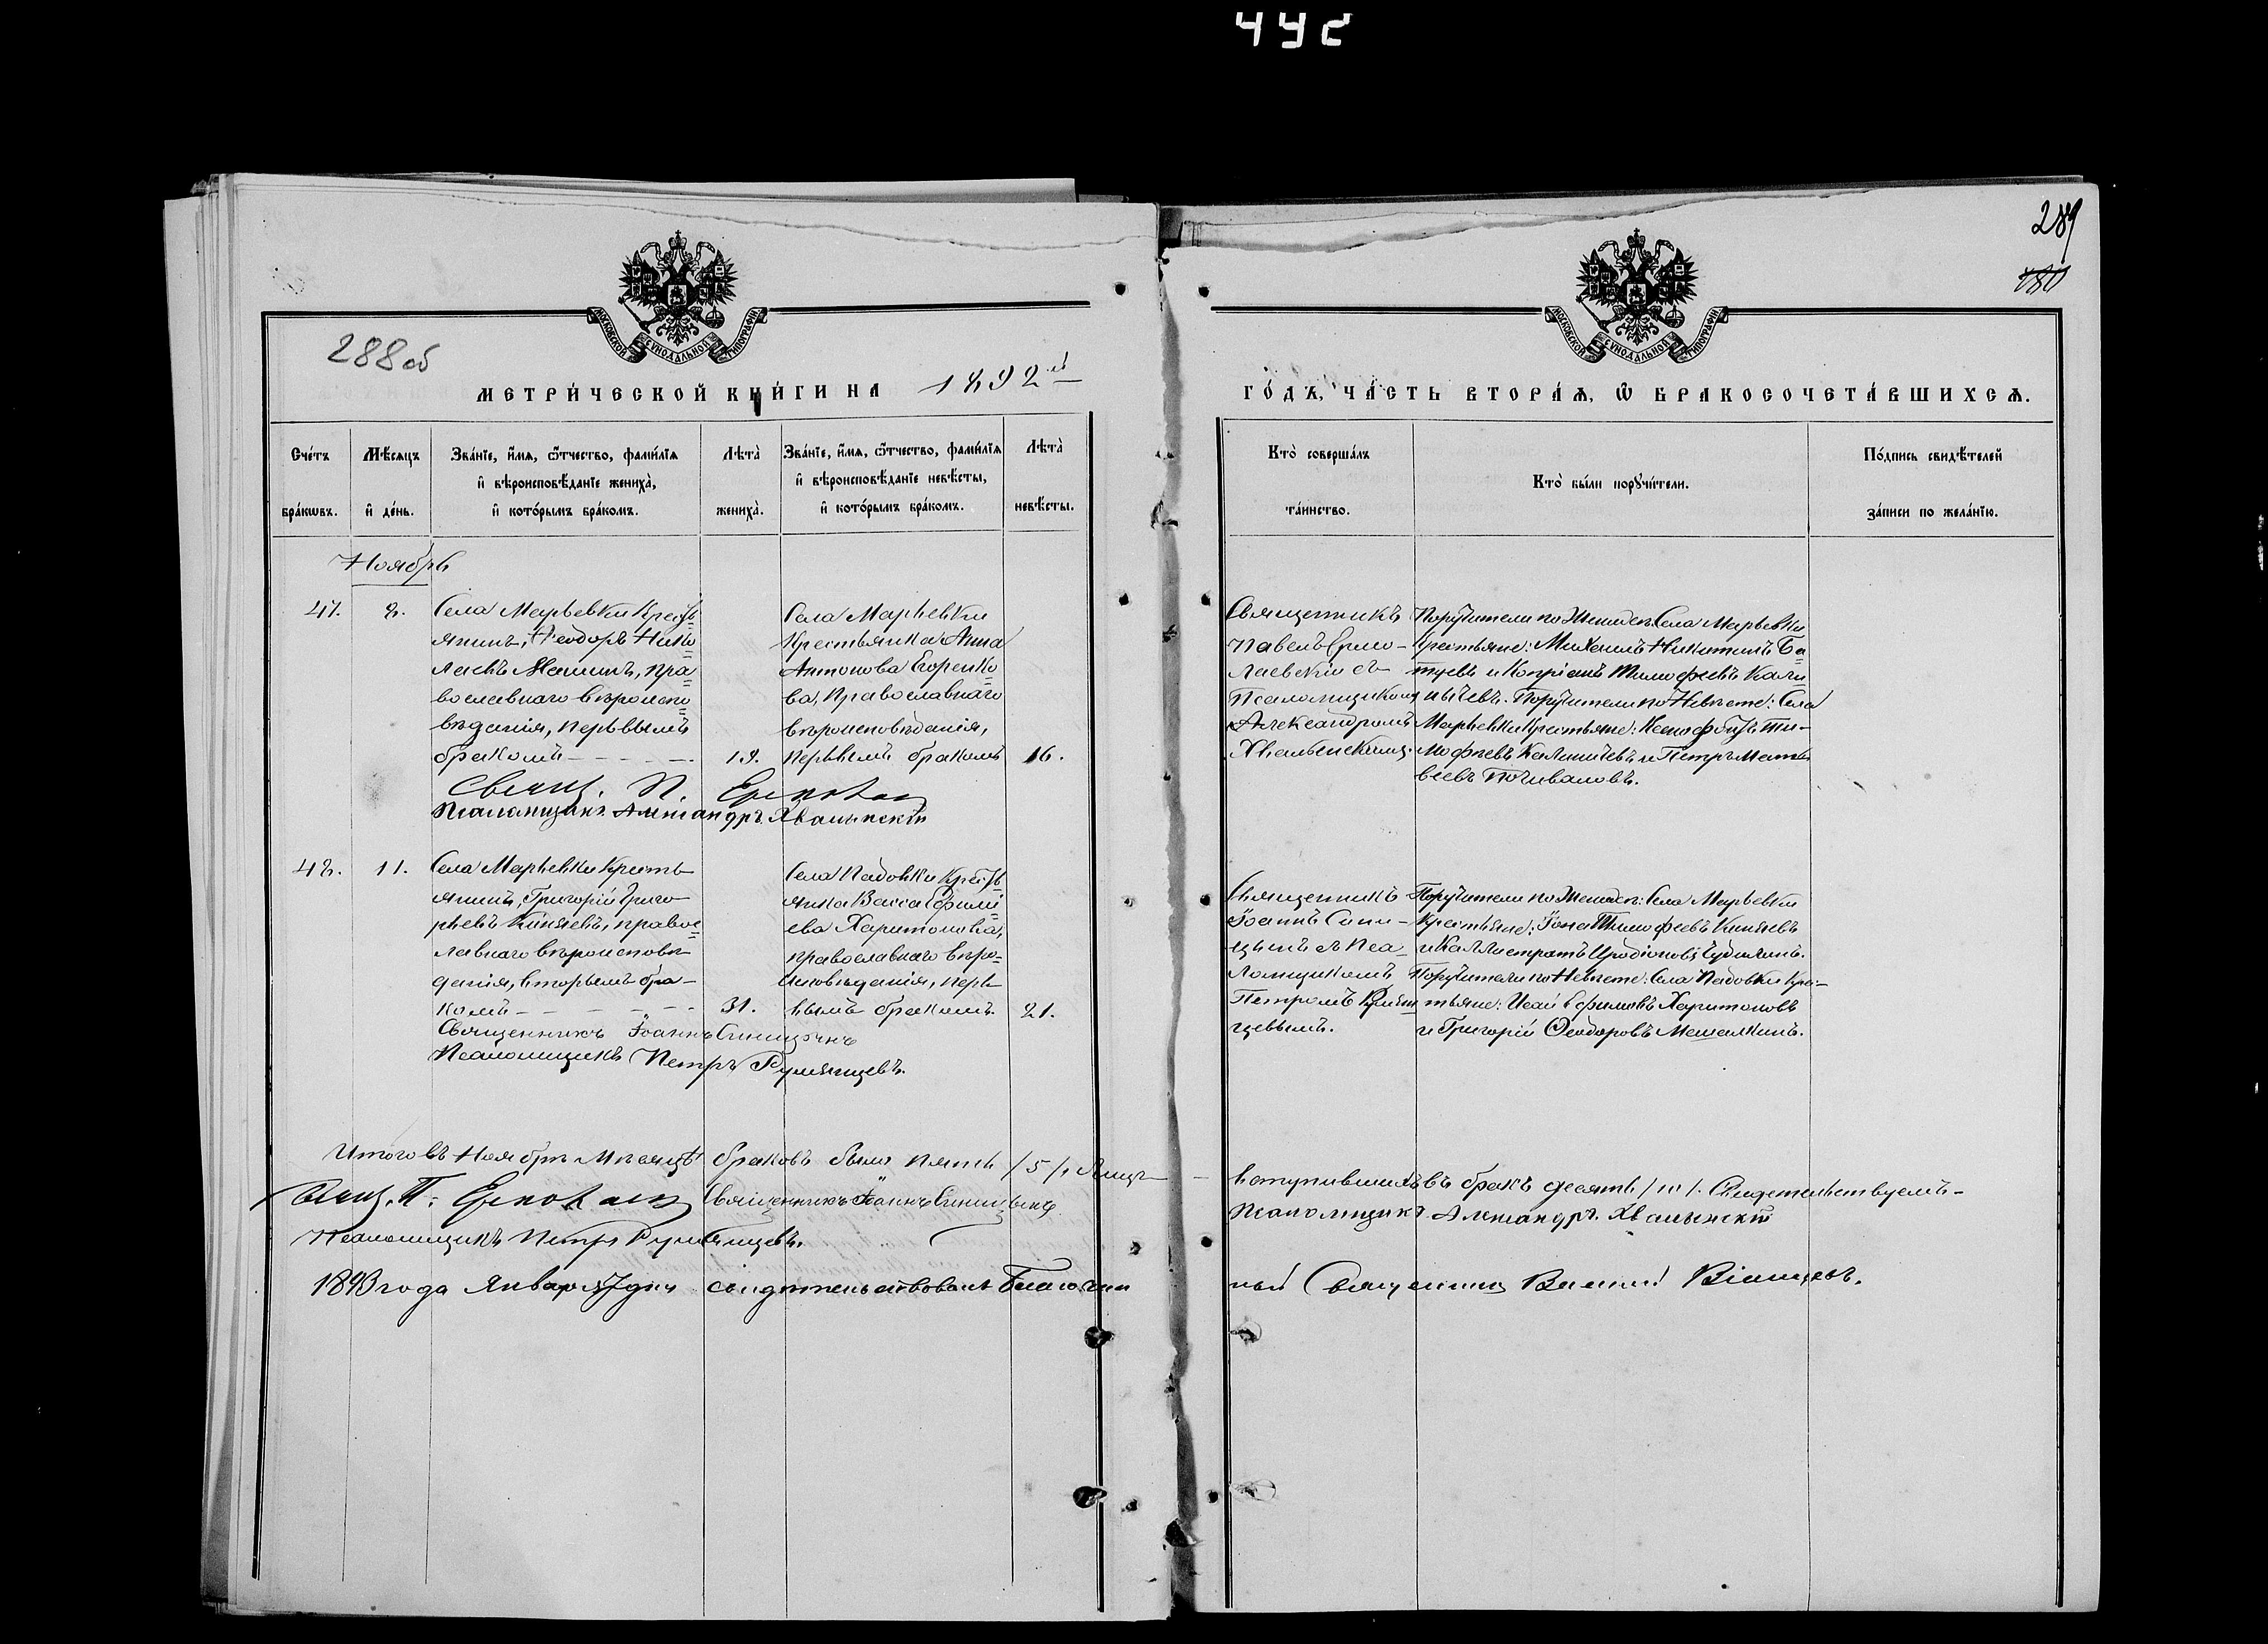 442
289
180
288об
МОСКОВСКОЙ СѴНОДАЛЬНОЙ ТИПОГРАФІИ
МОСКОВСКОЙ СѴНОДАЛЬНОЙ ТИПОГРАФІИ
МЕТРИ́ЧЕСКОЙ КНИ́ГИ НА 1892й
ГО́ДЪ, ЧА́СТЬ ВТОРА́Ѧ, Ѽ БРАКОСОЧЕТА́ВШИХСѦ.
Сче́тъ бра́кѡвъ.
Мѣ́сяцъ и҆ де́нь.
Зва́нїе, и҆́мѧ, ѻ҆́тчество, фами́лїѧ
и҆ вѣроисповѣ́данїе жениха̀,
и҆ кото́рымъ бра́комъ.
Лѣта̀ жениха̀.
Зва́нїе, и҆́мѧ, ѻ҆́тчество, фами́лїѧ
и҆ вѣроисповѣ́данїе невѣ́сты,
и҆ кото́рымъ бра́комъ.
Лѣта̀ невѣ́сты.
Кто̀ соверша́лъ
та́инство.
Кто̀ бы́ли порꙋчи́тели.
По́дпись свидѣ́телей
за́писи по жела́нїю.
Ноябрь
47.
8.
Села Марьевки Кресть
янинъ, Ѳеодоръ Нико
лаевъ пра
вославнаго вѣроиспо
вѣданія, первымъ
бракомъ
19.
Села Марьевки
Крестьянка Анна
Антонова Егоренко
ва, Православнаго
вѣроисповѣданія,
первымъ бракомъ
16.
Священникъ
Павелъ Ермо-
лаевскій съ
Псаломщикомъ
Александромъ
Хвалынскимъ.
Поручители по Женихѣ: Села Марьевки
Крестьяне: Михаилъ Никитинъ Ба
туевъ и Тимофеевъ Кали
ничевъ. Поручители по Невѣстѣ: Села
Марьевки Крестьяне: Ксенофонтъ Ти-
мофѣевъ Калиничевъ и Петръ Матвѣ
веевъ Почиваловъ.
Свящ. П.
Псаломщикъ Александръ Хвалынскій
48.
11.
Села Марьевки Кресть
янинъ, Григорій Григо
рьевъ Князевъ, правос
лавнаго вѣроисповѣ
данія, вторымъ бра-
комъ
31.
Села Падовки Кресть
янка Васса Ефимі
ева Харитонова,
православнаго вѣро-
исповѣданія, пер
вымъ бракомъ.
21.
Священникъ
Іоаннъ Сини-
цынъ съ Пса
ломщикомъ
Петромъ Румян
цевымъ.
Поручители по Женихѣ: Села Марьевки
Крестьяне: Іона Тимофеевъ Князевъ
и Каллистратъ
Поручители по Невѣстѣ: Села Падовки Крес-
тьяне: Исай Ефимовъ Харитоновъ
и Григорій Ѳеодоровъ Мешалкинъ.
Священникъ Іоаннъ Синицынъ
Псаломщикъ Петръ Румянцевъ.
Итого въ Ноябрѣ Мѣсяцѣ браковъ было пять /5/, Лицъ вступившихъ въ бракъ десять /10/. Свидетельствуемъ-
Свящ. П. Священникъ Іоаннъ Синицынъ Псаломщикъ Александръ Хвалынскій
Псаломщикъ Петръ Румянцевъ.
1893 года Января 7 дня свидѣтельствовалъ Благочин
ный Священникъ